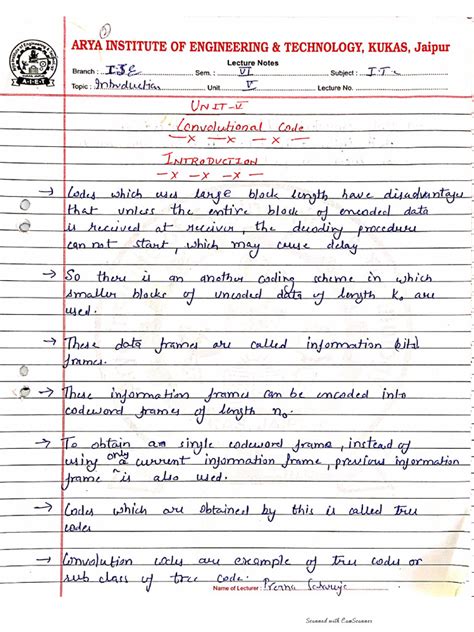 ①
ARYA INSTITUTE OF ENGINEERING & TECHNOLOGY, KUKAS, Jaipur
Lecture Notes
Branch : Sem. : VI Subject : ITC
Topic : Introduction Unit V Lecture No.
UNIT-V
Convolutional Code
INTRODUCTION
→ Codes which uses large block length have disadvantage
that unless the entire block of encoded data
is received at receiver, the decoding procedure
can not start, which may cause delay
→ So there is an another coding scheme in which
smaller blocks of uncoded data of length k₀ are
used.
→ These data frames are called information (bits)
frames.
→ These information frames can be encoded into
codeword frames of length n₀.
→ To obtain an single codeword frame, instead of
using only a current information frame, previous information
frame is also used.
→ Codes which are obtained by this is called tree
codes
→ Convolution codes are example of tree codes or
sub class of tree code.
Name of Lecturer : Prerna
Scanned with CamScanner